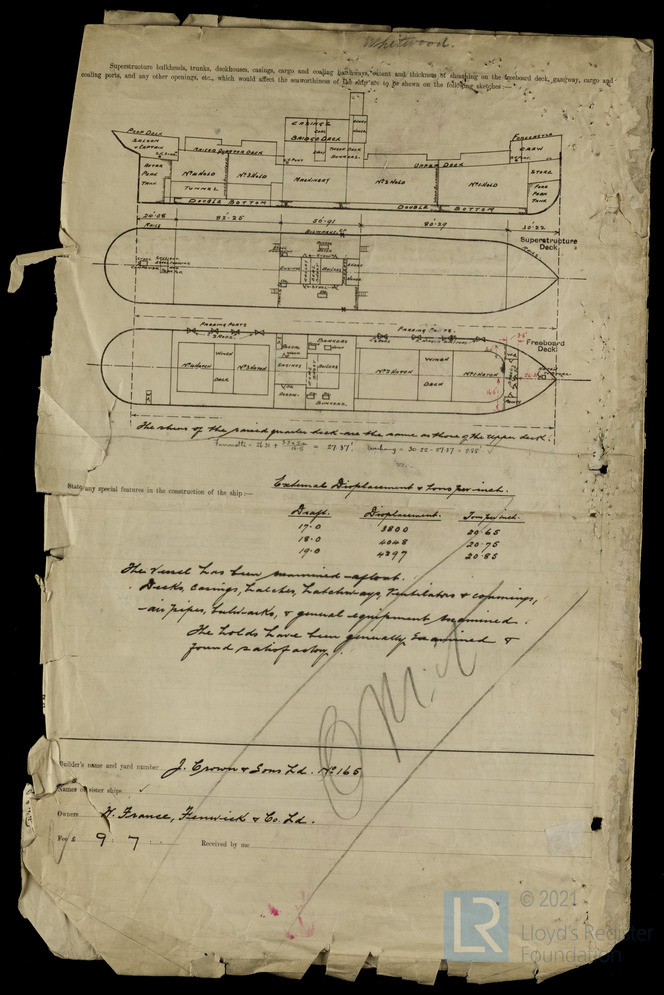 Whitwood.
Superstructure bulkheads, trunks, deckhouses, casings, cargo and coaling hatchways, extent and thickness of sheathing on the freeboard deck, gangway, cargo and
coaling ports, and any other openings, etc., which would affect the seaworthiness of the ship are to be shewn on the following sketches:—
CASINGS
BRIDGE DECK
POOP DECK
SALOON
& CAPTAIN
FORECASTLE
CREW
RAISED QUARTER DECK
UPPER DECK
AFTER
PEAK
TANK
No 4 HOLD
No 3 HOLD
MACHINERY
No 2 HOLD
No 1 HOLD
STORE
TUNNEL
FORE
PEAK
TANK
DOUBLE BOTTOM
DOUBLE BOTTOM
82·25
80·29
30·22
RAILS
BULWARKS
RAILS
Superstructure
Deck
ENGINES
BOILERS
FREEING PORTS
FREEING PORTS
Freeboard
Deck
BUNKERS
WINCH
DECK
ENGINES
BOILERS
No 4 HATCH
No 3 HATCH
No 2 HATCH
No 1 HATCH
WINCH
DECK
BUNKERS
The sheer of the raised quarter deck are the same as those of the upper deck.
= 27.37'
State any special features in the construction of the ship:—
External Displacement & Tons per inch.
Draft. Displacement. Tons per inch.
17·0 3800 20·65
18·0 4048 20·75
19·0 4297 20·85
The vessel has been examined afloat.
Decks, Casings, hatches, hatchways, Ventilators & coamings,
air pipes, bulwarks, & general equipment examined.
The holds have been generally examined &
found satisfactory.
Builder's name and yard number J. Crown & Sons Ld. No 165
Names of sister ships
Owners W. France, Fenwick & Co. Ld.
Fee £ 9 : 7 : Received by me
LR
© 2021
Lloyd's Register
Foundation